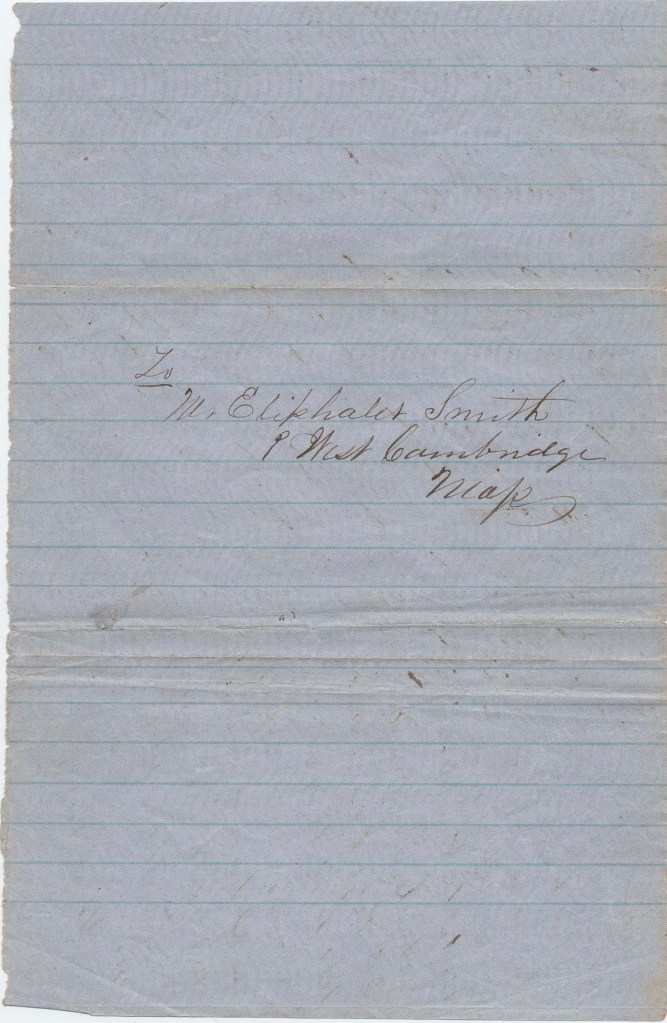 To
Mr Eliphalet Smith
West Cambridge
Mass